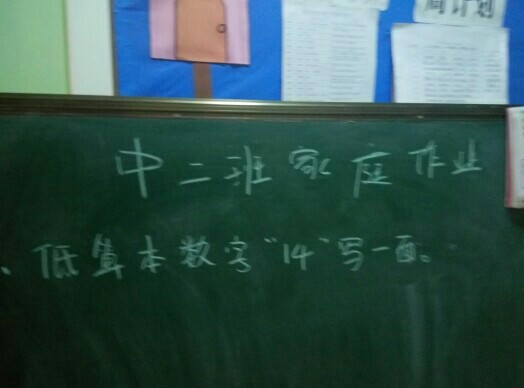 周计划
中二班家庭作业
、低算本数字“14”写一面。